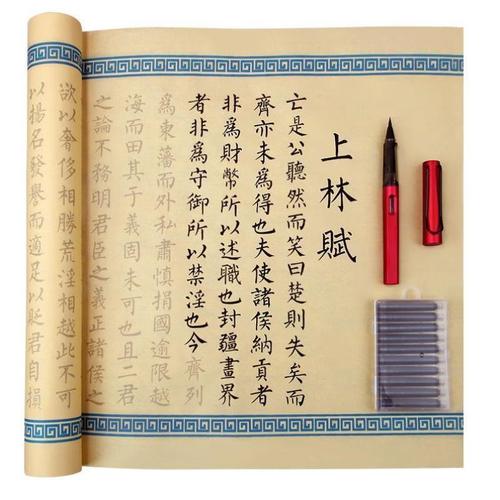 上林賦
亡是公聽然而笑曰楚則失矣而
齊亦未爲得也夫使諸侯納貢者
非爲財幣所以述職也封疆畫界
者非爲守御所以禁淫也今齊列
爲東藩而外私肅慎捐國逾限越
海而田其于義固未可也且二君
之論不務明君臣之義正諸侯之
欲以奢侈相勝荒淫相越此不可
以揚名發譽而適足以貶君自損